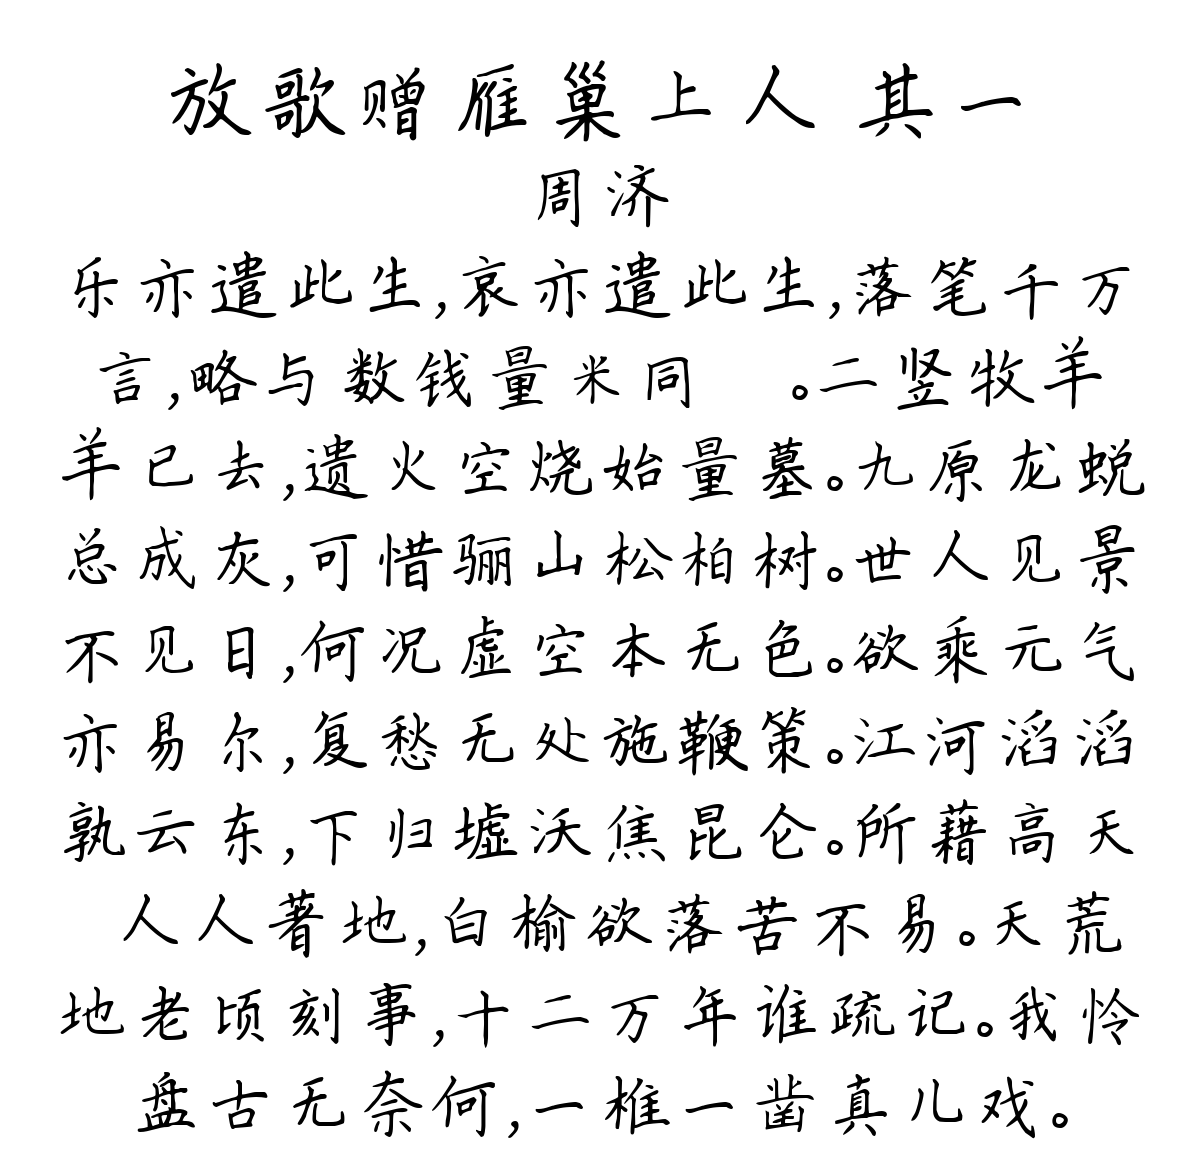 放歌赠雁巢上人 其一
周济
乐亦遣此生,哀亦遣此生,落笔千万
言,略与数钱量米同 。二竖牧羊
羊已去,遗火空烧始量墓。九原龙蜕
总成灰,可惜骊山松柏树。世人见景
不见日,何况虚空本无色。欲乘元气
亦易尔,复愁无处施鞭策。江河滔滔
孰云东,下归墟沃焦昆仑。所藉高天
人人著地,白榆欲落苦不易。天荒
地老顷刻事,十二万年谁疏记。我怜
盘古无奈何,一椎一凿真儿戏。